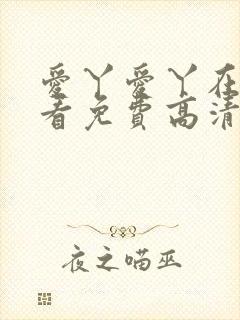 愛丫愛丫在
看免費高清
夜之喵巫